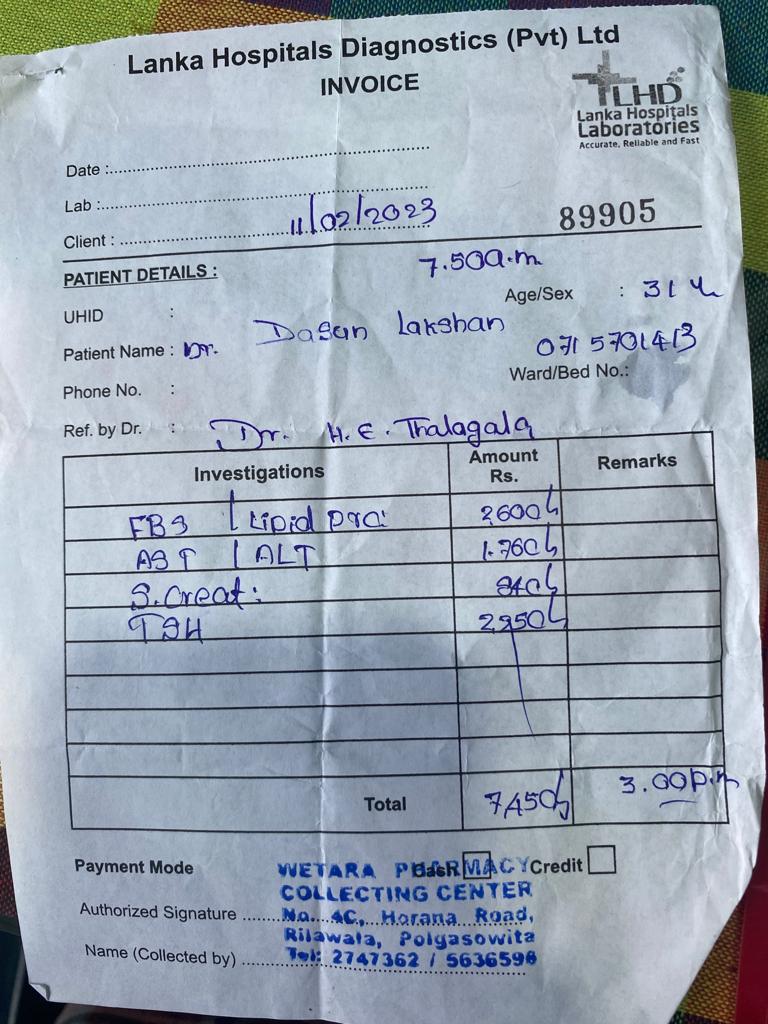 Lanka Hospitals Diagnostics (Pvt) Ltd
INVOICE
LHD
Lanka Hospitals
Laboratories
Accurate, Reliable and Fast
Date :
Lab :
Client : 11/02/2023
89905
PATIENT DETAILS :
7.50a.m
UHID :
Age/Sex : 31 y
Patient Name : Dr. Dasun Lakshan
071 5701413
Phone No. :
Ward/Bed No.:
Ref. by Dr. : Dr. H.E. Thalagala
Investigations Amount Rs. Remarks
FBS / Lipid pro: 2600/-
AST / ALT 1.760/-
S.Creat: 840/-
TSH 2250/-
Total 7,450/- 3.00p.m
Payment Mode Cash Credit
Authorized Signature
Name (Collected by)
WETARA PHARMACY
COLLECTING CENTER
No. 4C, Horana Road,
Rilawala, Polgasowita
Tel: 2747362 / 5636598